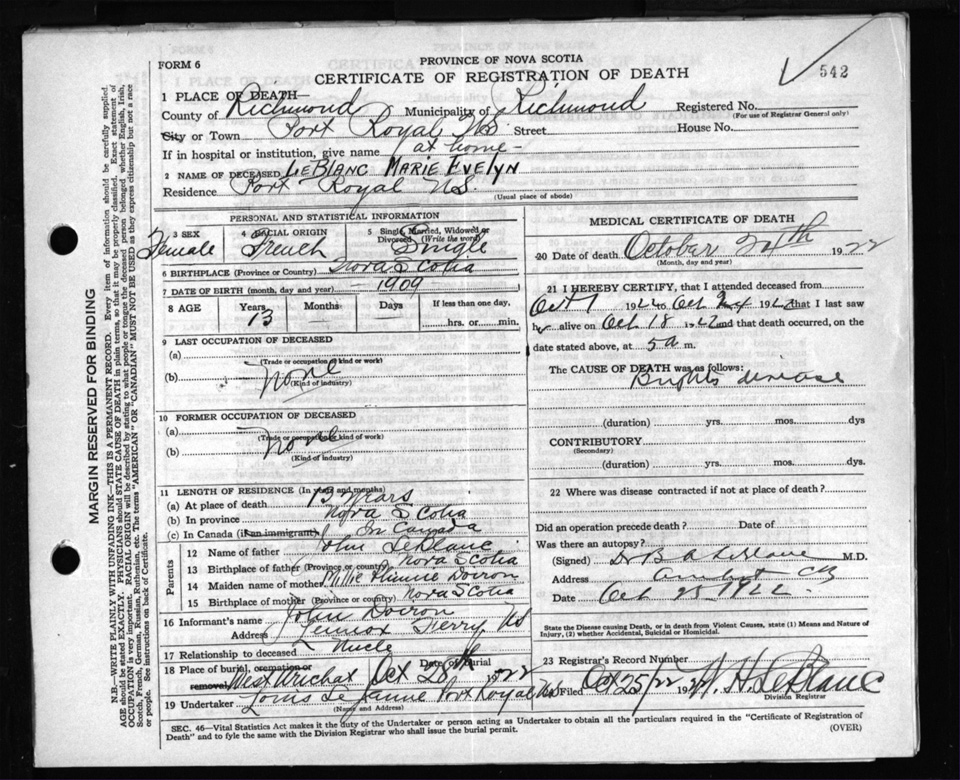 FORM 6
PROVINCE OF NOVA SCOTIA
CERTIFICATE OF REGISTRATION OF DEATH
542
1 PLACE OF DEATH—
County of Richmond Municipality of Richmond Registered No.
(For use of Registrar General only)
City or Town Port Royal NS. Street House No.
If in hospital or institution, give name at home -
2 NAME OF DECEASED LeBlanc Marie Evelyn
Residence Port Royal NS.
(Usual place of abode)
PERSONAL AND STATISTICAL INFORMATION
3 SEX Female 4 RACIAL ORIGIN French 5 Single, Married, Widowed or Divorced (Write the word) Single
6 BIRTHPLACE (Province or Country) Nova Scotia
7 DATE OF BIRTH (month, day and year) - 1909
8 AGE Years 13 Months Days If less than one day, hrs. or min.
9 LAST OCCUPATION OF DECEASED
(a)
(Trade or occupation or kind of work)
(b) None
(Kind of industry)
10 FORMER OCCUPATION OF DECEASED
(a)
(Trade or occupation or kind of work)
(b) None
(Kind of industry)
11 LENGTH OF RESIDENCE (In years and months)
(a) At place of death 13 years
(b) In province Nova Scotia
(c) In Canada (if an immigrant) In Canada
Parents
12 Name of father John LeBlanc
13 Birthplace of father (Province or country) Nova Scotia
14 Maiden name of mother Doiron
15 Birthplace of mother (Province or country) Nova Scotia
16 Informant's name John Doiron
Address Lennox Ferry NS
17 Relationship to deceased Uncle
18 Place of burial, cremation or removal West Arichat Date of burial Oct 1922
19 Undertaker Louis Port Royal NS
(Name and Address)
MEDICAL CERTIFICATE OF DEATH
20 Date of death October 24th 1922
(Month, day and year)
21 I HEREBY CERTIFY, that I attended deceased from
Oct 1 1922 to Oct 24 1922 that I last saw
h alive on Oct 18 1922 and that death occurred, on the
date stated above, at 5 a m.
The CAUSE OF DEATH was as follows:
Brights disease
(duration) yrs. mos. dys
CONTRIBUTORY
(Secondary)
(duration) yrs. mos. dys.
22 Where was disease contracted if not at place of death?
Did an operation precede death? Date of
Was there an autopsy?
(Signed) B A LeBlanc M.D.
Address Arichat CB
Date Oct 25 1922.
State the Disease causing Death, or in death from Violent Causes, state (1) Means and Nature of Injury, (2) whether Accidental, Suicidal or Homicidal.
23 Registrar's Record Number
Filed Oct 25/22 192 H. LeBlanc
Division Registrar
SEC. 46—Vital Statistics Act makes it the duty of the Undertaker or person acting as Undertaker to obtain all the particulars required in the "Certificate of Registration of
Death" and to fyle the same with the Division Registrar who shall issue the burial permit.
(OVER)
MARGIN RESERVED FOR BINDING
N.B.—WRITE PLAINLY WITH UNFADING INK—THIS IS A PERMANENT RECORD. Every item of information should be carefully supplied.
AGE should be stated EXACTLY. PHYSICIANS should STATE CAUSE OF DEATH in plain terms, so that it may be properly classified. Exact statement of
OCCUPATION is very important. RACIAL ORIGIN will be described by stating to what people or tongue the deceased person belonged whether English, Irish,
Scotch, French, German, Russian, Ruthenian, etc. The terms "AMERICAN" OR "CANADIAN" MUST NOT BE USED as they express citizenship but not a race
or people. See instructions on back of Certificate.